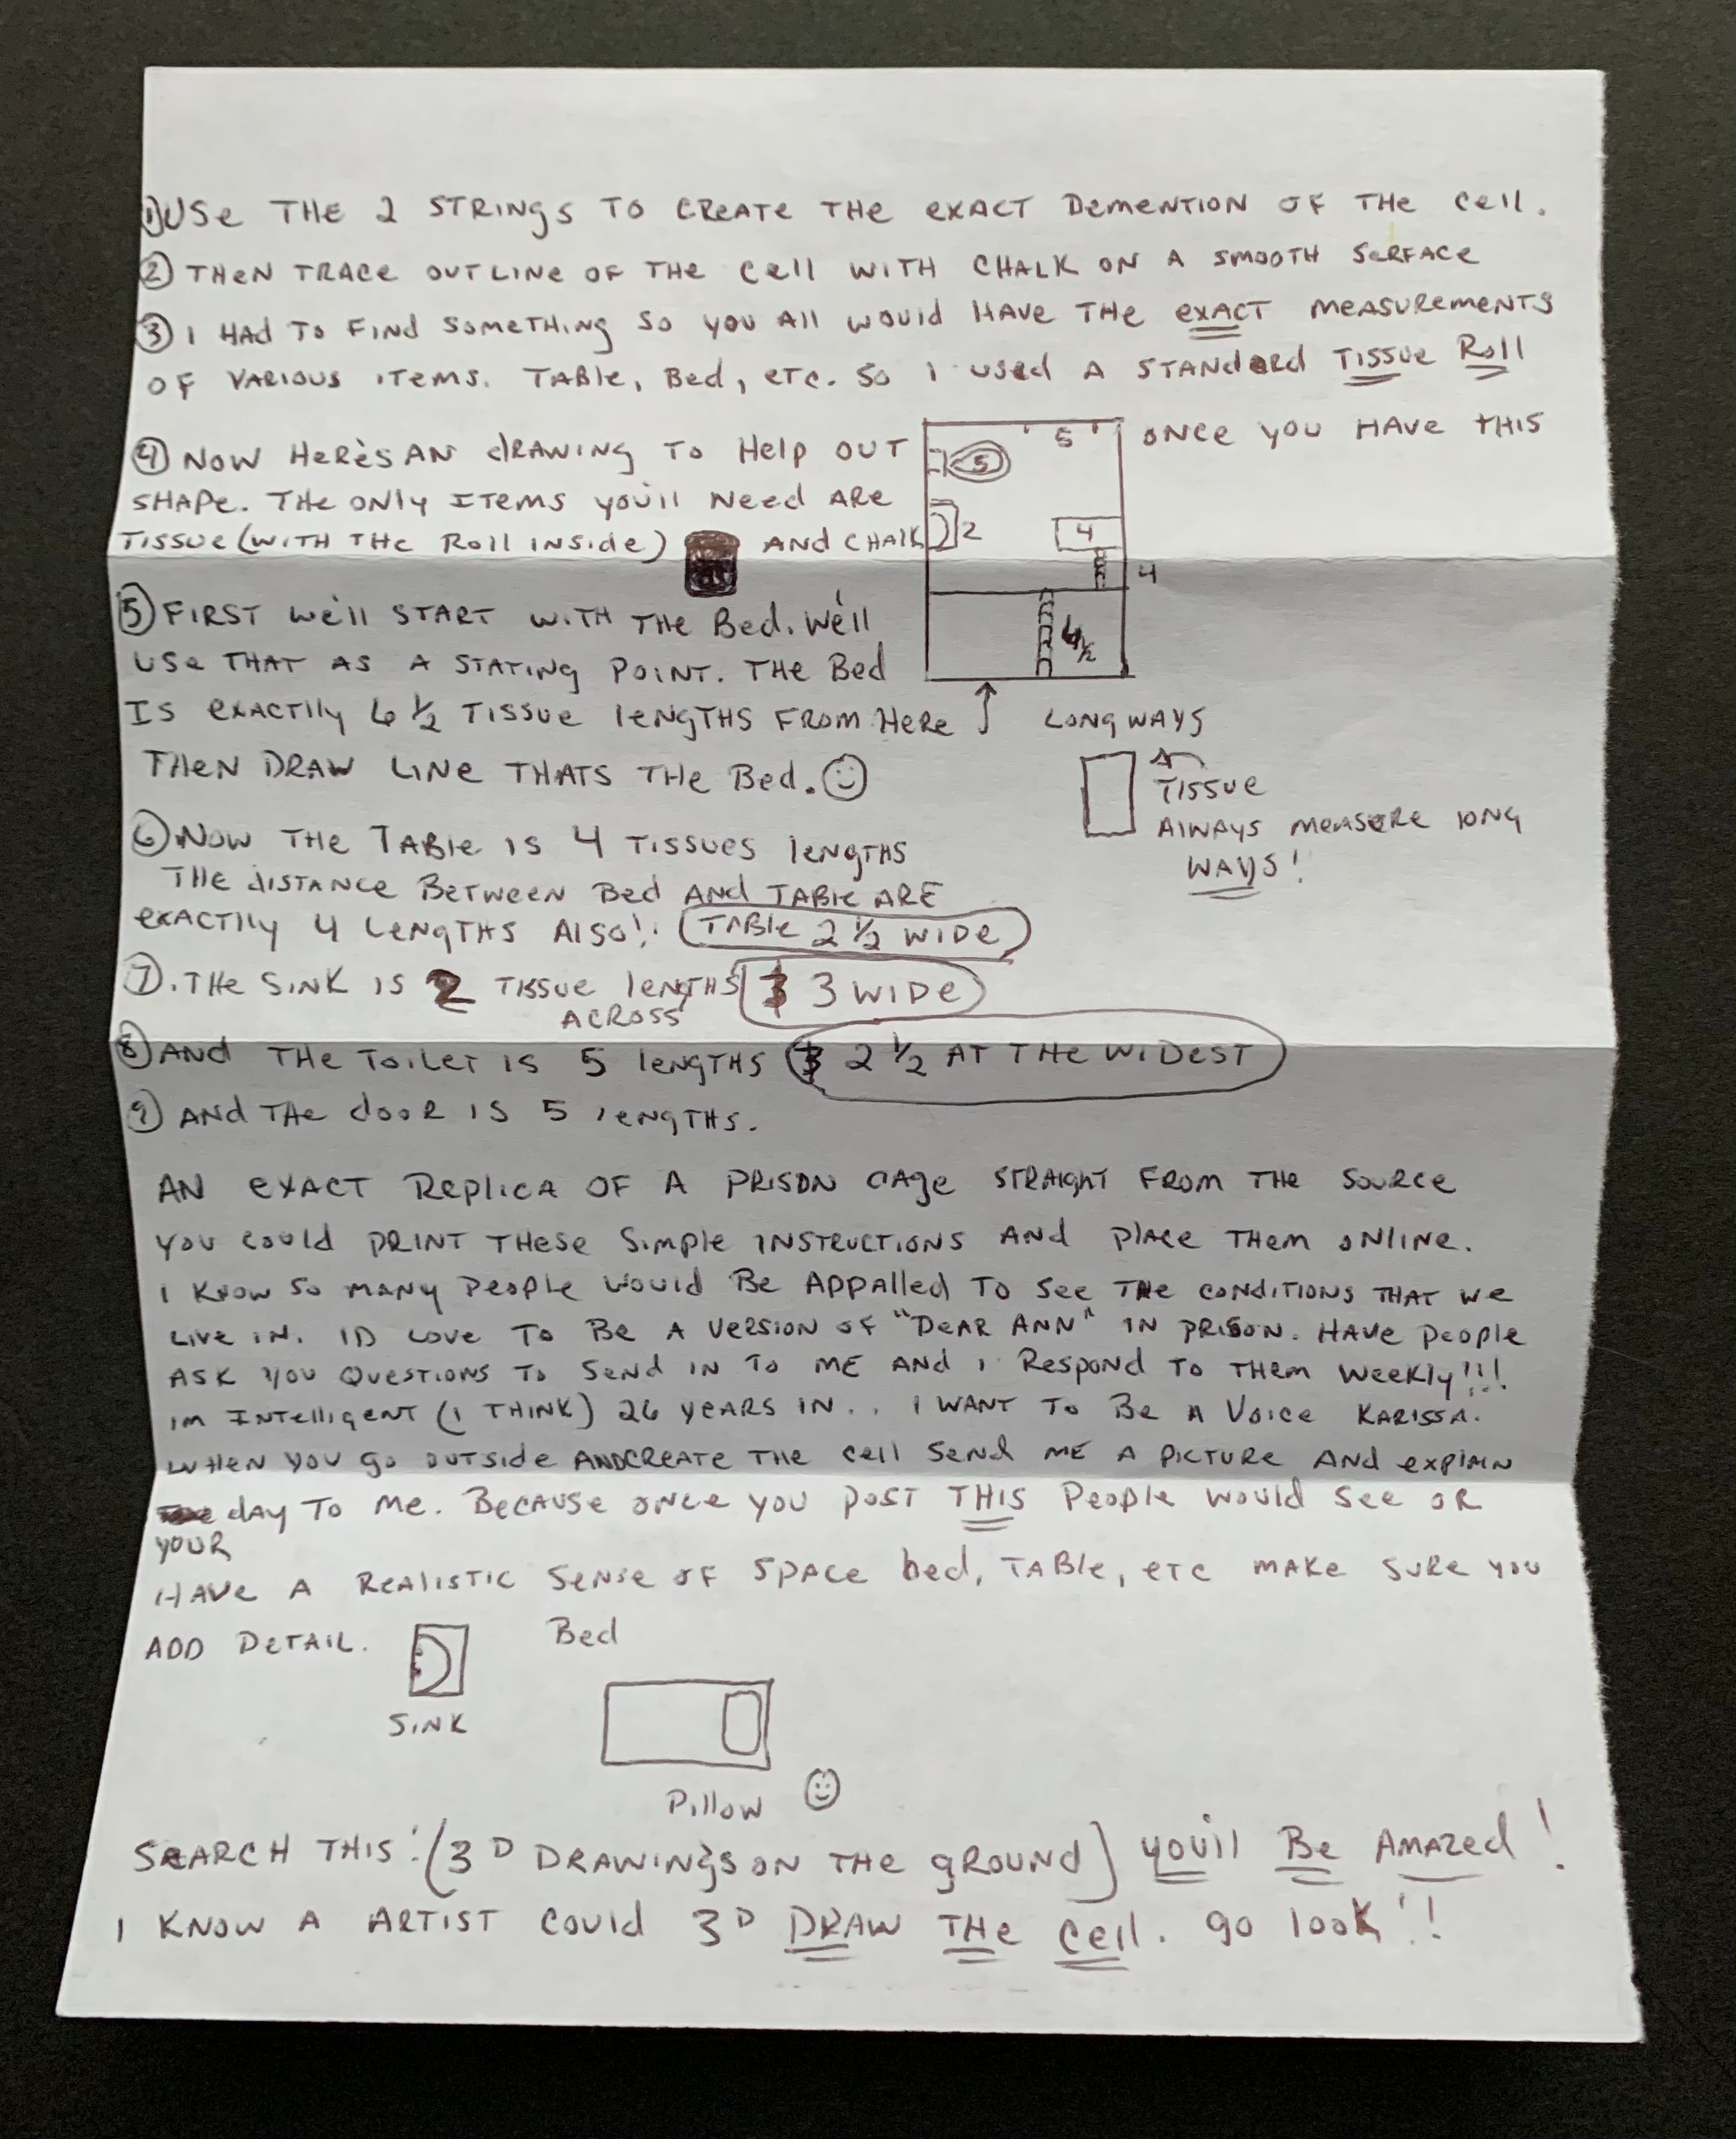 ①USE THE 2 STRINGS TO CREATE THE EXACT DEMENTION OF THE CELL.
② THEN TRACE OUTLINE OF THE CELL WITH CHALK ON A SMOOTH SURFACE
③ I HAD TO FIND SOMETHING SO YOU ALL WOULD HAVE THE EXACT MEASUREMENTS
OF VARIOUS ITEMS. TABLE, BED, ETC. SO I USED A STANDARD TISSUE ROLL
④ NOW HERE'S AN DRAWING TO HELP OUT
SHAPE. THE ONLY ITEMS YOU'LL NEED ARE
TISSUE (WITH THE ROLL INSIDE) AND CHALK
5
5
2
4
4
6½
ONCE YOU HAVE THIS
⑤ FIRST WE'LL START WITH THE BED. WE'LL
USE THAT AS A STATING POINT. THE BED
IS EXACTLLY 6 ½ TISSUE LENGTHS FROM HERE ↑
THEN DRAW LINE THATS THE BED. ☺
LONG WAYS
TISSUE
ALWAYS MEASURE LONG
WAYS!
⑥ NOW THE TABLE IS 4 TISSUES LENGTHS
THE DISTANCE BETWEEN BED AND TABLE ARE
EXACTLLY 4 LENGTHS ALSO! (TABLE 2 ½ WIDE)
⑦. THE SINK IS 2 TISSUE LENGTHS & 3 WIDE
ACROSS
⑧ AND THE TOILET IS 5 LENGTHS & 2 ½ AT THE WIDEST
⑨ AND THE DOOR IS 5 LENGTHS.
AN EXACT REPLICA OF A PRISON CAGE STRAIGHT FROM THE SOURCE
YOU COULD PRINT THESE SIMPLE INSTRUCTIONS AND PLACE THEM ONLINE.
I KNOW SO MANY PEOPLE WOULD BE APPALLED TO SEE THE CONDITIONS THAT WE
LIVE IN. ID LOVE TO BE A VERSION OF "DEAR ANN" IN PRISON. HAVE PEOPLE
ASK YOU QUESTIONS TO SEND IN TO ME AND I RESPOND TO THEM WEEKLY!!!
IM INTELLIGENT (I THINK) 26 YEARS IN.. I WANT TO BE A VOICE KARISSA.
WHEN YOU GO OUTSIDE ANDCREATE THE CELL SEND ME A PICTURE AND EXPLAIN
DAY TO ME. BECAUSE ONCE YOU POST THIS PEOPLE WOULD SEE OR
YOUR
HAVE A REALISTIC SENSE OF SPACE BED, TABLE, ETC MAKE SURE YOU
ADD DETAIL.
SINK
BED
PILLOW ☺
SEARCH THIS: (3D DRAWINGS ON THE GROUND) YOU'LL BE AMAZED!
I KNOW A ARTIST COULD 3D DRAW THE CELL. GO LOOK!!